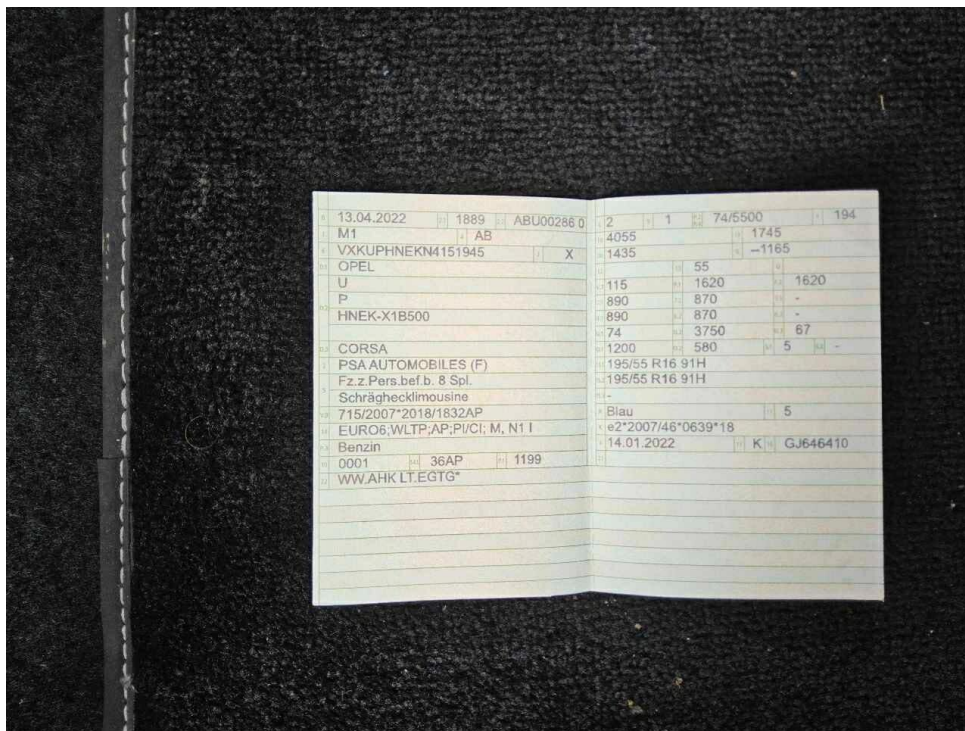 13.04.2022 1889 ABU00286 0
M1 AB
VXKUPHNEKN4151945 X
OPEL
U
P
HNEK-X1B500
CORSA
PSA AUTOMOBILES (F)
Fz.z.Pers.bef.b. 8 Spl.
Schräghecklimousine
715/2007*2018/1832AP
EURO6;WLTP;AP;PI/CI; M, N1 I
Benzin
0001 36AP 1199
WW.AHK LT.EGTG*
2 1 74/5500 194
4055 1745
1435 –1165
55
115 1620 1620
890 870 -
890 870 -
74 3750 67
1200 580 5 -
195/55 R16 91H
195/55 R16 91H
-
Blau 5
e2*2007/46*0639*18
14.01.2022 K GJ646410